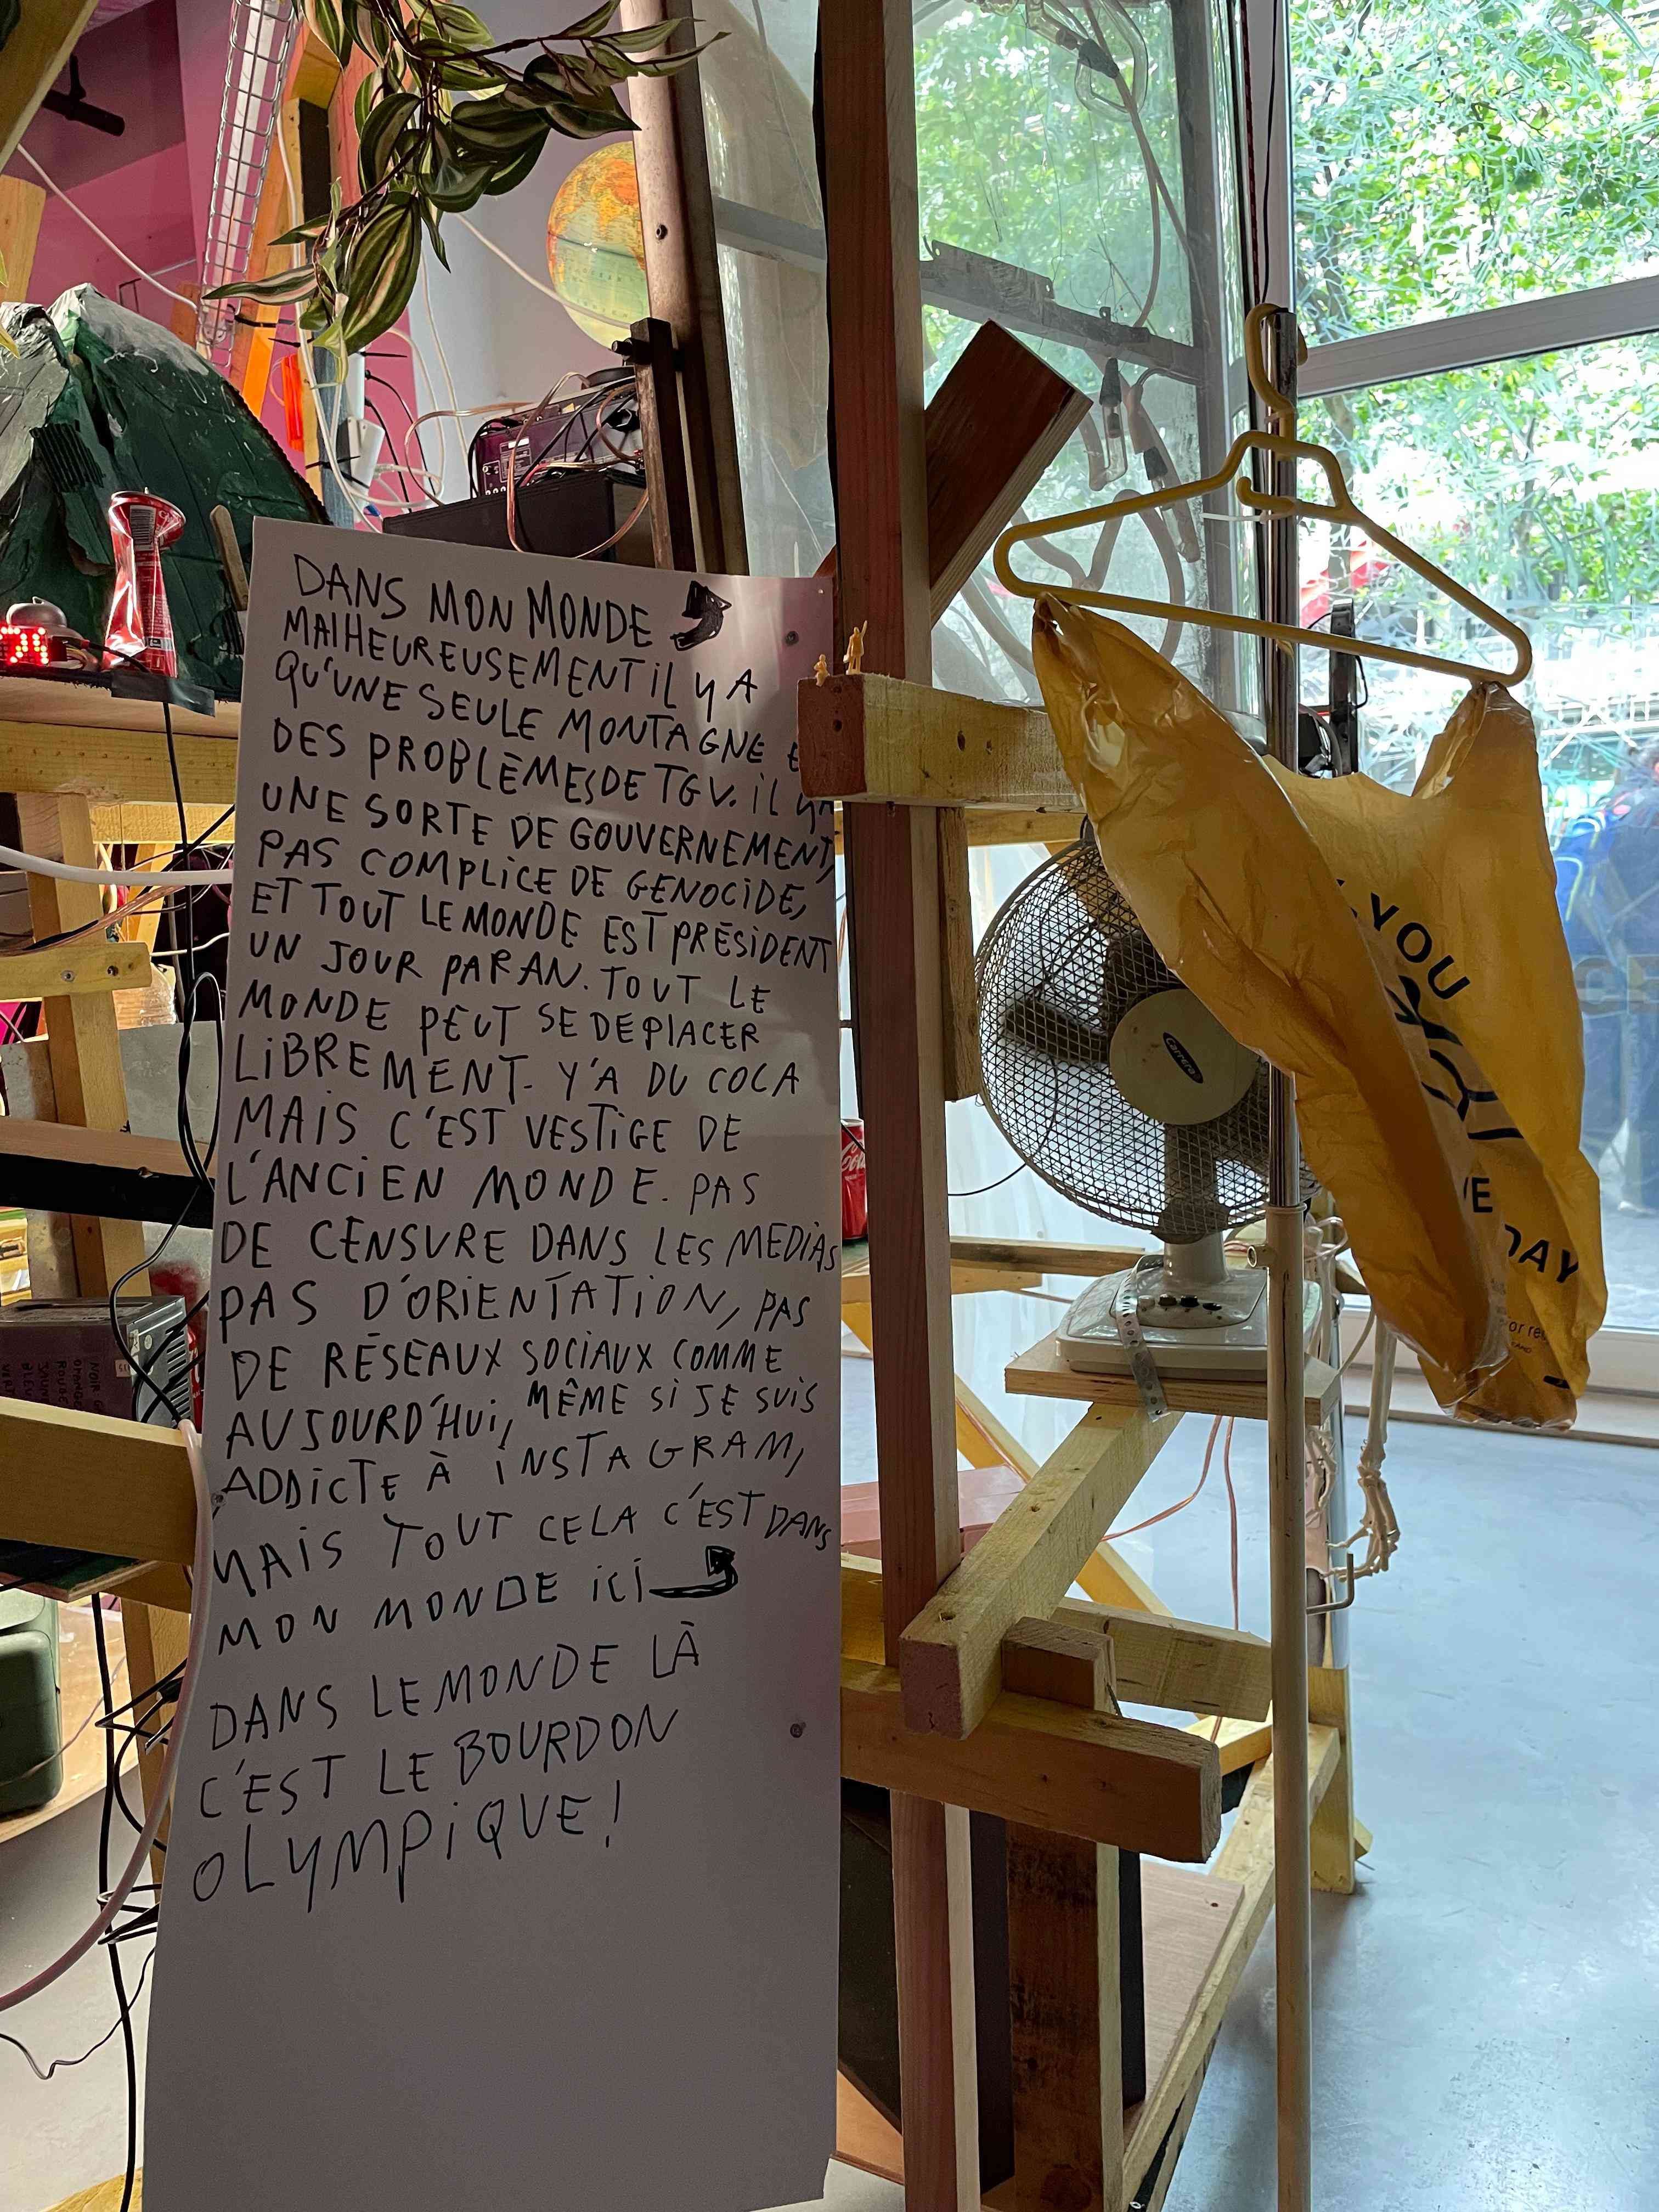 DANS MON MONDE
MALHEUREUSEMENT iL Y A
QU'UNE SEULE MONTAGNE
DES PROBLÈMES DE TGV. iL YA
UNE SORTE DE GOUVERNEMENT,
PAS COMPLiCE DE GENOCiDE,
ET TOUT LE MONDE EST PRÉSiDENT
UN JOUR PAR AN. TOUT LE
MONDE PEUT SE DEPLACER
LiBREMENT. Y'A DU COCA
MAiS C'EST VESTiGE DE
L'ANCiEN MONDE. PAS
DE CENSURE DANS LES MEDiAS
PAS D'ORiENTATiON, PAS
DE RÉSEAUX SOCiAUX COMME
AUJOURD'HUi, MÊME Si JE SUiS
ADDiCTE À iNSTAGRAM,
MAiS TOUT CELA C'EST DANS
MON MONDE iCi
DANS LE MONDE LÀ
C'EST LE BOURDON
OLYMPiQUE!
YOU
DAY
carrera